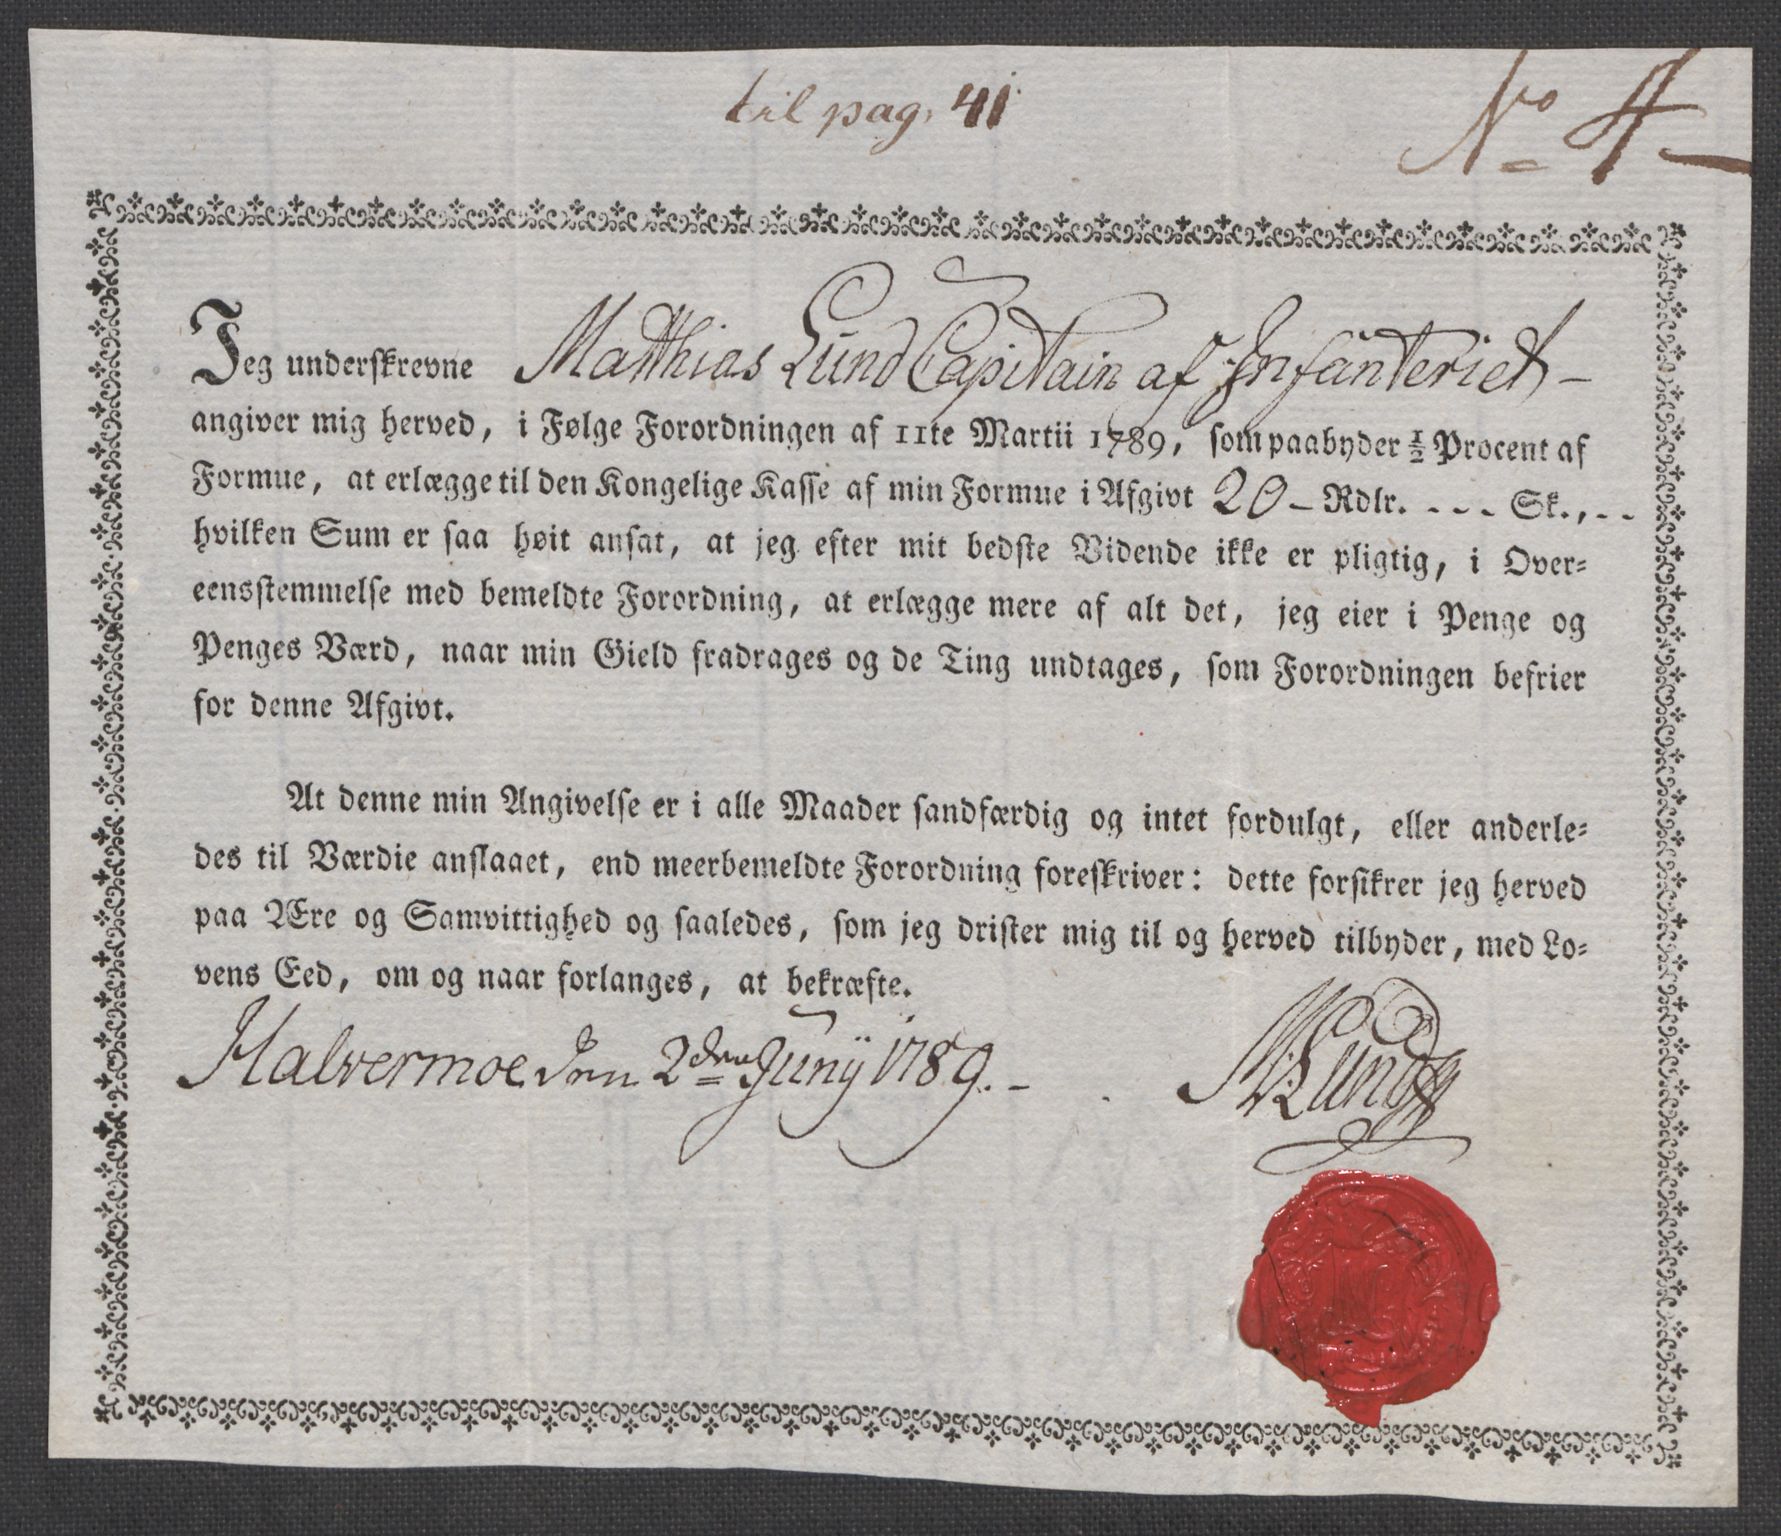 til pag. 41
No 4
Jeg underskrevne Matthias Lund Capitain af Infanteriet –
angiver mig herved, i Følge Forordningen af 11te Martii 1789, som paabyder ½ Procent af
Formue, at erlægge til den Kongelige Kasse af min Formue i Afgivt 20 – Rdlr. - - - Sk., - -
hvilken Sum er saa høit ansat, at jeg efter mit bedste Vidende ikke er pligtig, i Over=
eensstemmelse med bemeldte Forordning, at erlægge mere af alt det, jeg eier i Penge og
Penges Værd, naar min Gield fradrages og de Ting undtages, som Forordningen befrier
for denne Afgivt.
At denne min Angivelse er i alle Maader sandfærdig og intet fordulgt, eller anderle=
des til Værdie anslaaet, end meerbemeldte Forordning foreskriver: dette forsikrer jeg herved
paa Ære og Samvittighed og saaledes, som jeg drister mig til og herved tilbyder, med Lo=
vens Eed, om og naar forlanges, at bekræfte.
Halvermoe den 2den Junij 1789. –
M: Lund